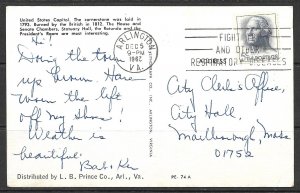 United States Capitol. The cornerstone was laid in
1793. Burned by the British in 1812. The House and
Senate Chambers, Statuary Hall, the Rotunda and the
President's Room are most interesting.
ARLINGTON
DEC 5
9-PM
VA.
FIGHT
AND OTHER
RESPIRATORY DISEASES
Hi!
Doing the town
up Brown Have
worn the heels
off my shoes!
Weather is
beautiful.
City Clerk's Office,
City Hall,
Marlborough, Mass
01752
Distributed by L. B. Prince Co., Arl., Va.
PE. 74 A